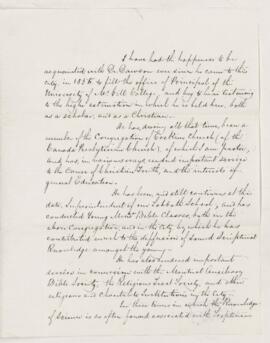 I have had the happiness to be
acquainted with Dr. Dawson ever since he came to this
city, in 1855 to fill the office of Principal of the
University of McGill College, and beg to bear testimony
to the high estimation in which he is held here, both
as a scholar, and as a Christian.
He has, during all that time, been a
member of the Congregation of Erskine Church, (of the
Canada Presbyterian Church), of which I am pastor,
and has, in various ways rendered important services
to the cause of Christian truth, and the interests of
general Education.
He has been and still continues at this
date, Superintendent of our Sabbath School, and has
conducted Young Men's Bible Classes, both in the
above Congregation, and in the City by which he has
contributed much to the diffusion of sound Scriptural
Knowledge amongst the young.
He has also rendered important
services in connexion with the Montreal Auxiliary
Bible Society, the Religious Tract Society, and other
religious and charitable Institutions in the city.
In these times in which the Knowledge
of Science is so often found associated with Scepticism